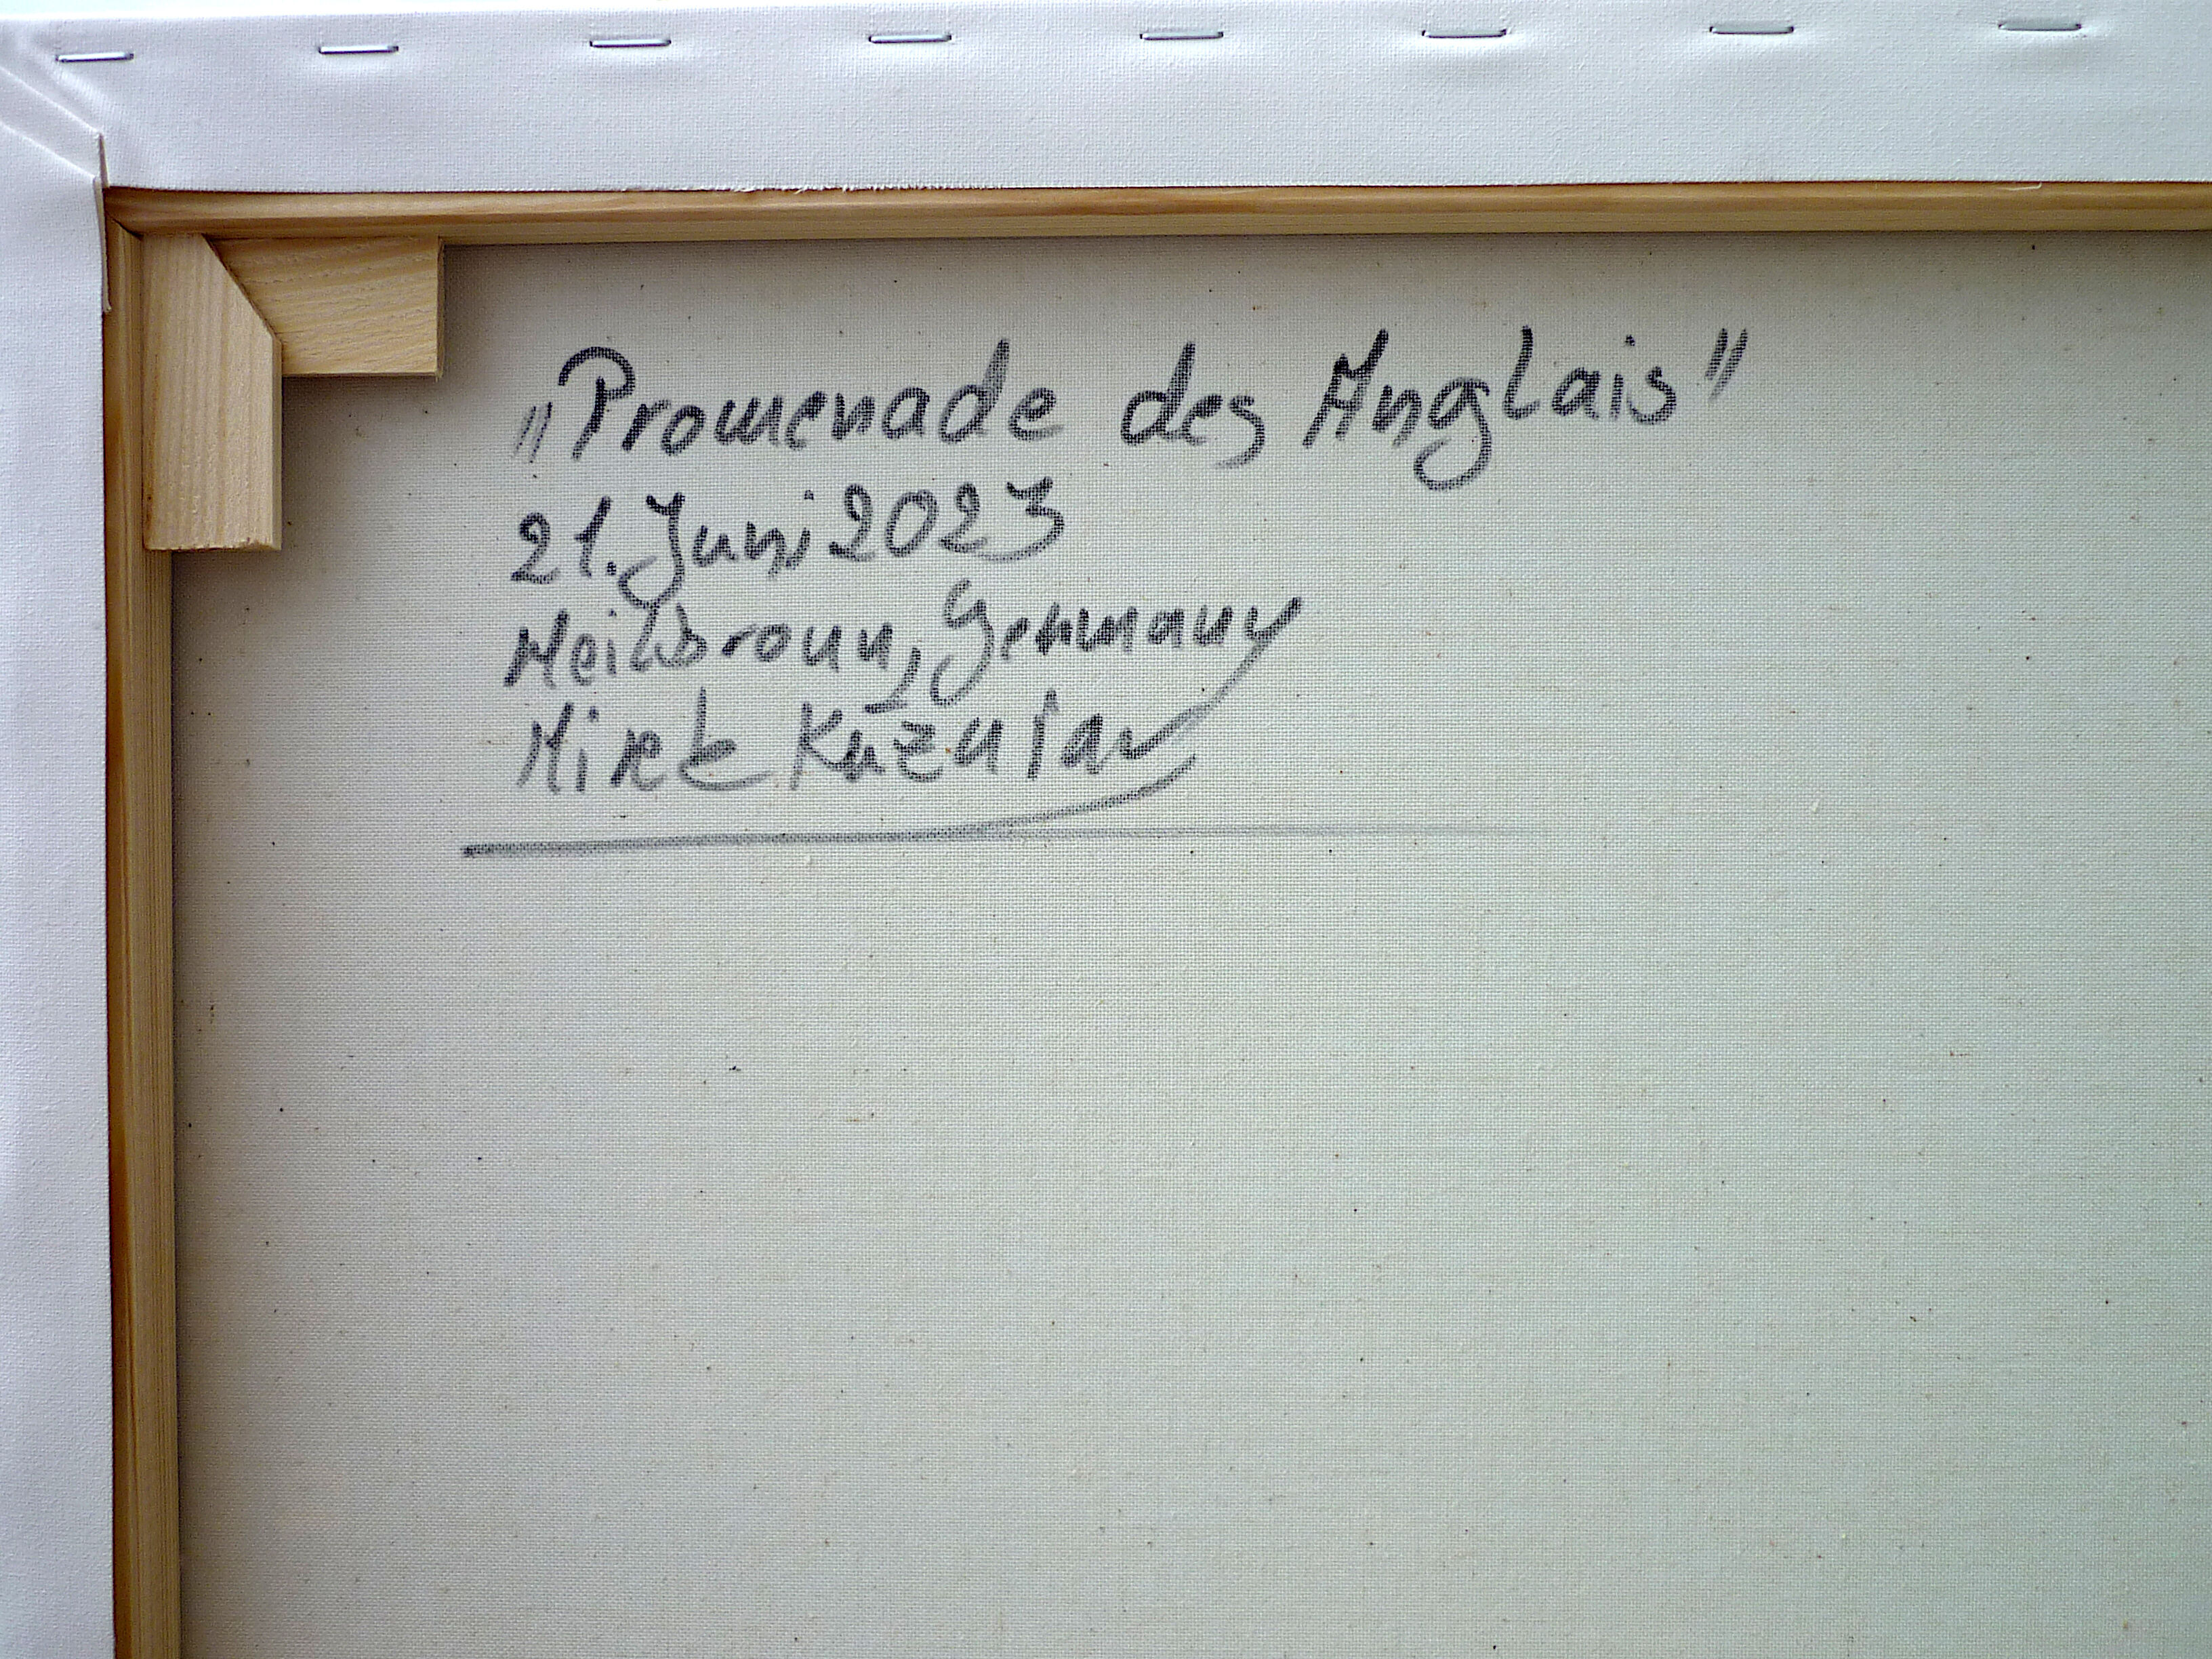 „Promenade des Anglais"
21. Juni 2023
Heilbronn, Germany
Mirek Kuzniar